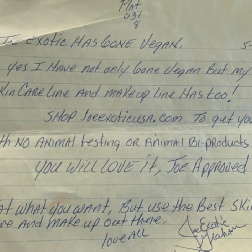 Plat
03t
8
Joe Exotic Has Gone Vegan. 5-
Yes I Have not only Gone Vegan But my
Skin Care Line and Makeup Line Has too!
Shop joeexoticusa.com. To get you
th No Animal testing or Animal Bi-products.
You will Love it, Joe Approved
at what you want, But use the Best Skin
re and Make up out there.
love All Joe Exotic